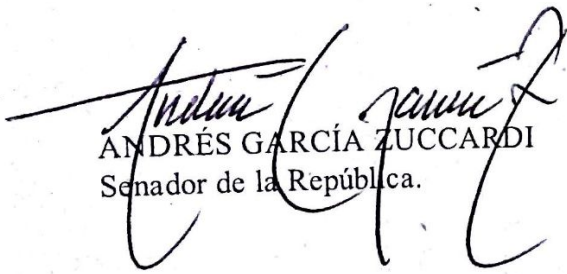 Andrés García Z
ANDRÉS GARCÍA ZUCCARDI
Senador de la República.